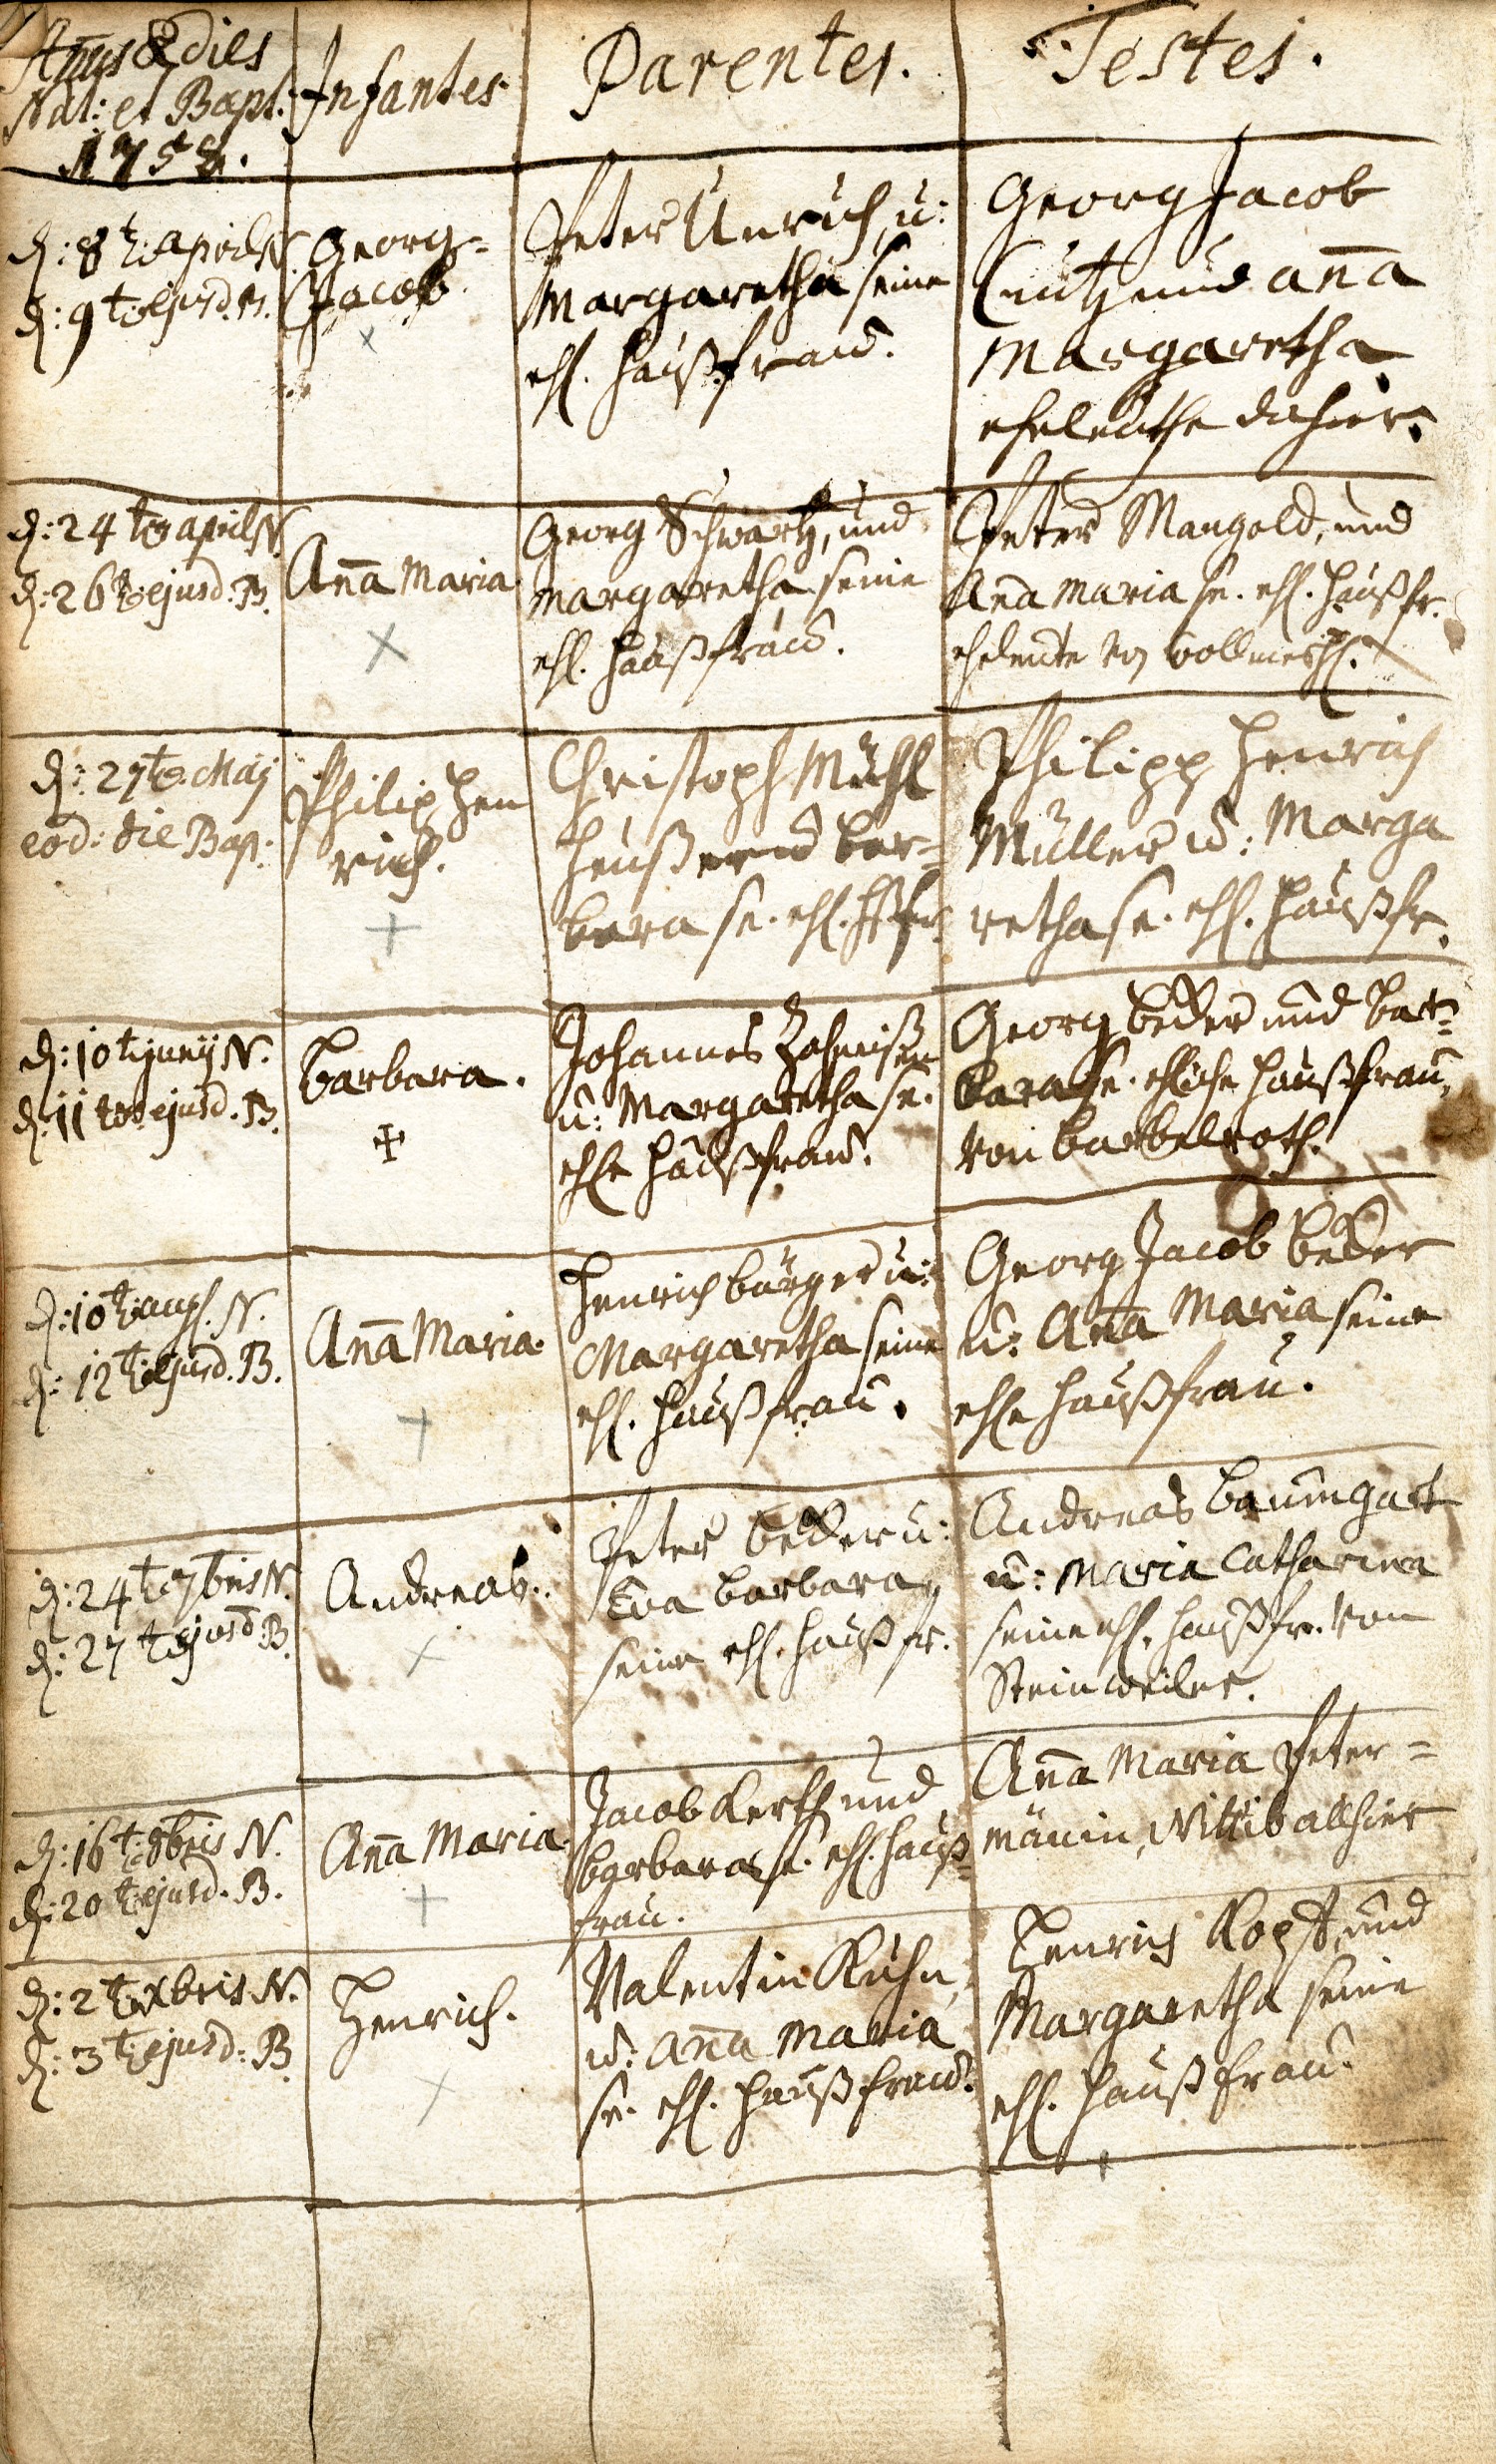 Anus & dies
Nat: et Bapt:
1758.
Infantes.
Parentes.
Testes.
d: 8t. april N.
d: 9t. ejusd. B.
Georg=
Jacob.
Peter Unruh, u:
Margaretha seine
ehl. Haußfrau.
Georg Jacob
und Ana
Margaretha
eheleuthe dahier.
d: 24ten april N.
d: 26t. ejusd. B.
Ana Maria
Georg Schwartz, und
Margaretha seine
ehl. Haußfrau.
Peter Mangold, und
Ana Maria se. ehl. Haußfr.
eheleute von
d: 27te. Maij
eod: die Bap:
Philip Hen
rich.
Christoph Mühl
und Bar=
bara se. ehl.
Philipp Henrich
Müller u: Marga
retha se. ehl. Haußfr.
d: 10t. junij N.
d: 11ten ejusd. B.
Barbara.
Johannes
u: Margaretha se.
ehle Haußfrau.
Georg Becker und Bar=
bara se. ehliche Haußfrau,
von Barbelroth.
d: 10t. aug. N.
d: 12t. ejusd. B.
Ana Maria.
Henrich Bürger u:
Margaretha seine
ehl. Haußfrau.
Georg Jacob Becker
u: Ana Maria seine
ehle Haußfrau.
d: 24t. 7bris N.
d: 27t. ejusd B.
Andreas.
Peter Becker u:
Eva Barbara,
seine ehl. Haußfr.
Andreas Baumgart
u: Maria Catharina
seine ehl. Haußfr. von
Steinweiler.
d: 16t. 8bris N.
d: 20t. ejusd. B.
Ana Maria.
Jacob Kerth und
Barbara se. ehl. Hauß=
frau.
Ana Maria Peter=
männin, Wittib allhier
d: 2t. Xbris N.
d: 3t. ejusd: B.
Henrich.
Valentin Kuhn,
u: Ana Maria
se. ehl. Haußfrau.
Henrich Kopf, und
Margaretha seine
ehl. Haußfrau.